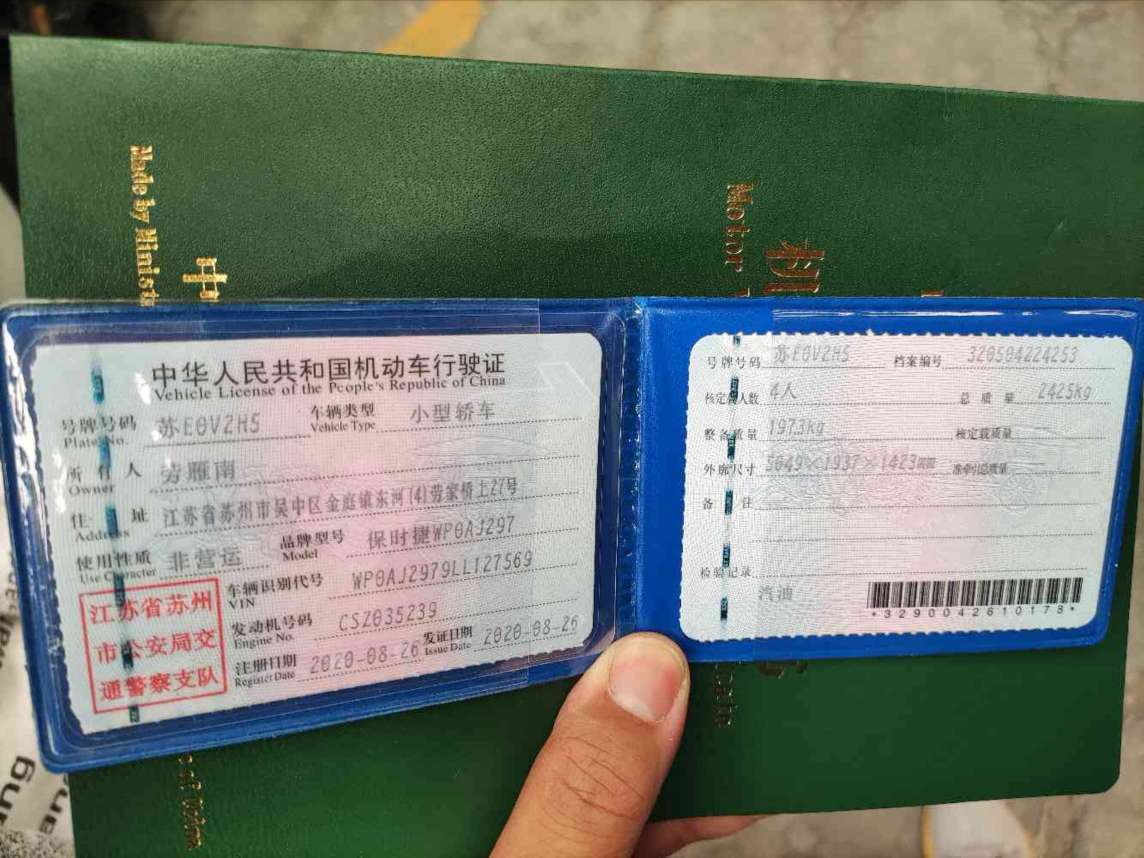 Made by Minist
中
Motor
机
中华人民共和国机动车行驶证
Vehicle License of the People's Republic of China
号牌号码 苏E0V2H5 车辆类型 小型轿车
Plate No. Vehicle Type
所有人 劳雁南
Owner
住址 江苏省苏州市吴中区金庭镇东河(4)劳家桥上27号
Address
使用性质 非营运 品牌型号 保时捷WP0AJ297
Use Character Model
江苏省苏州
市公安局交
通警察支队
车辆识别代号 WP0AJ2979LL127569
VIN
发动机号码 CSZ035239
Engine No.
注册日期 2020-08-26 发证日期 2020-08-26
Register Date Issue Date
号牌号码 苏E0V2H5 档案编号 320504224253
核定载人数 4人 总质量 2425kg
整备质量 1973kg 核定载质量
外廓尺寸 5049×1937×1423mm 准牵引总质量
备注
检验记录
汽油
*3290042610178*